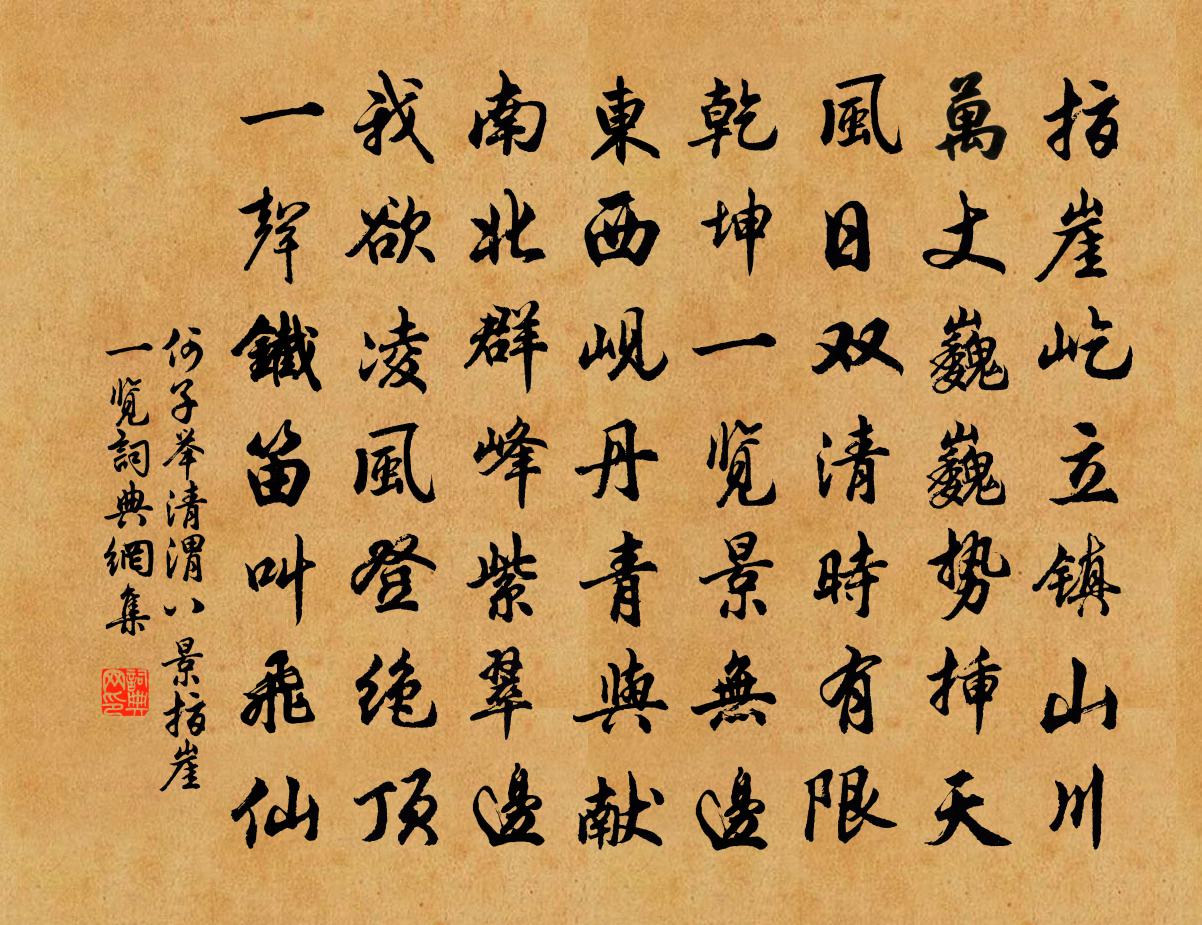 指崖屹立镇山川
萬丈巍巍势挿天
風日双清時有限
乾坤一览景無邊
東西峴丹青與献
南北群峰紫翠邊
我欲凌風登绝顶
一聲鐵笛叫飛仙
何子举清渭八景指崖
一览詞典網集
詞典网印